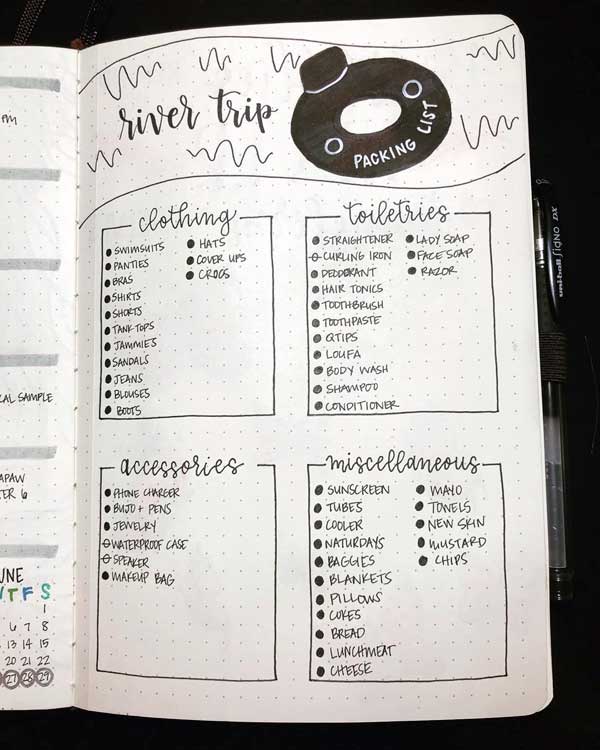 river trip
PACKING LIST
clothing
SWIMSUITS
PANTIES
BRAS
SHIRTS
SHORTS
TANK TOPS
JAMMIES
SANDALS
JEANS
BLOUSES
BOOTS
HATS
COVER UPS
CROCS
toiletries
STRAIGHTENER
CURLING IRON
DEODORANT
HAIR TONICS
TOOTHBRUSH
TOOTHPASTE
QTIPS
LOUFA
BODY WASH
SHAMPOO
CONDITIONER
LADY SOAP
FACE SOAP
RAZOR
accessories
PHONE CHARGER
BUJO + PENS
JEWELRY
WATERPROOF CASE
SPEAKER
MAKEUP BAG
miscellaneous
SUNSCREEN
TUBES
COOLER
NATURDAYS
BAGGIES
BLANKETS
PILLOWS
COKES
BREAD
LUNCHMEAT
CHEESE
MAYO
TOWELS
NEW SKIN
MUSTARD
CHIPS
PM
SAMPLE
6
T F S
1
6 7 8
13 14 15
20 21 22
27 28 29
uni-ball SIGNO DX